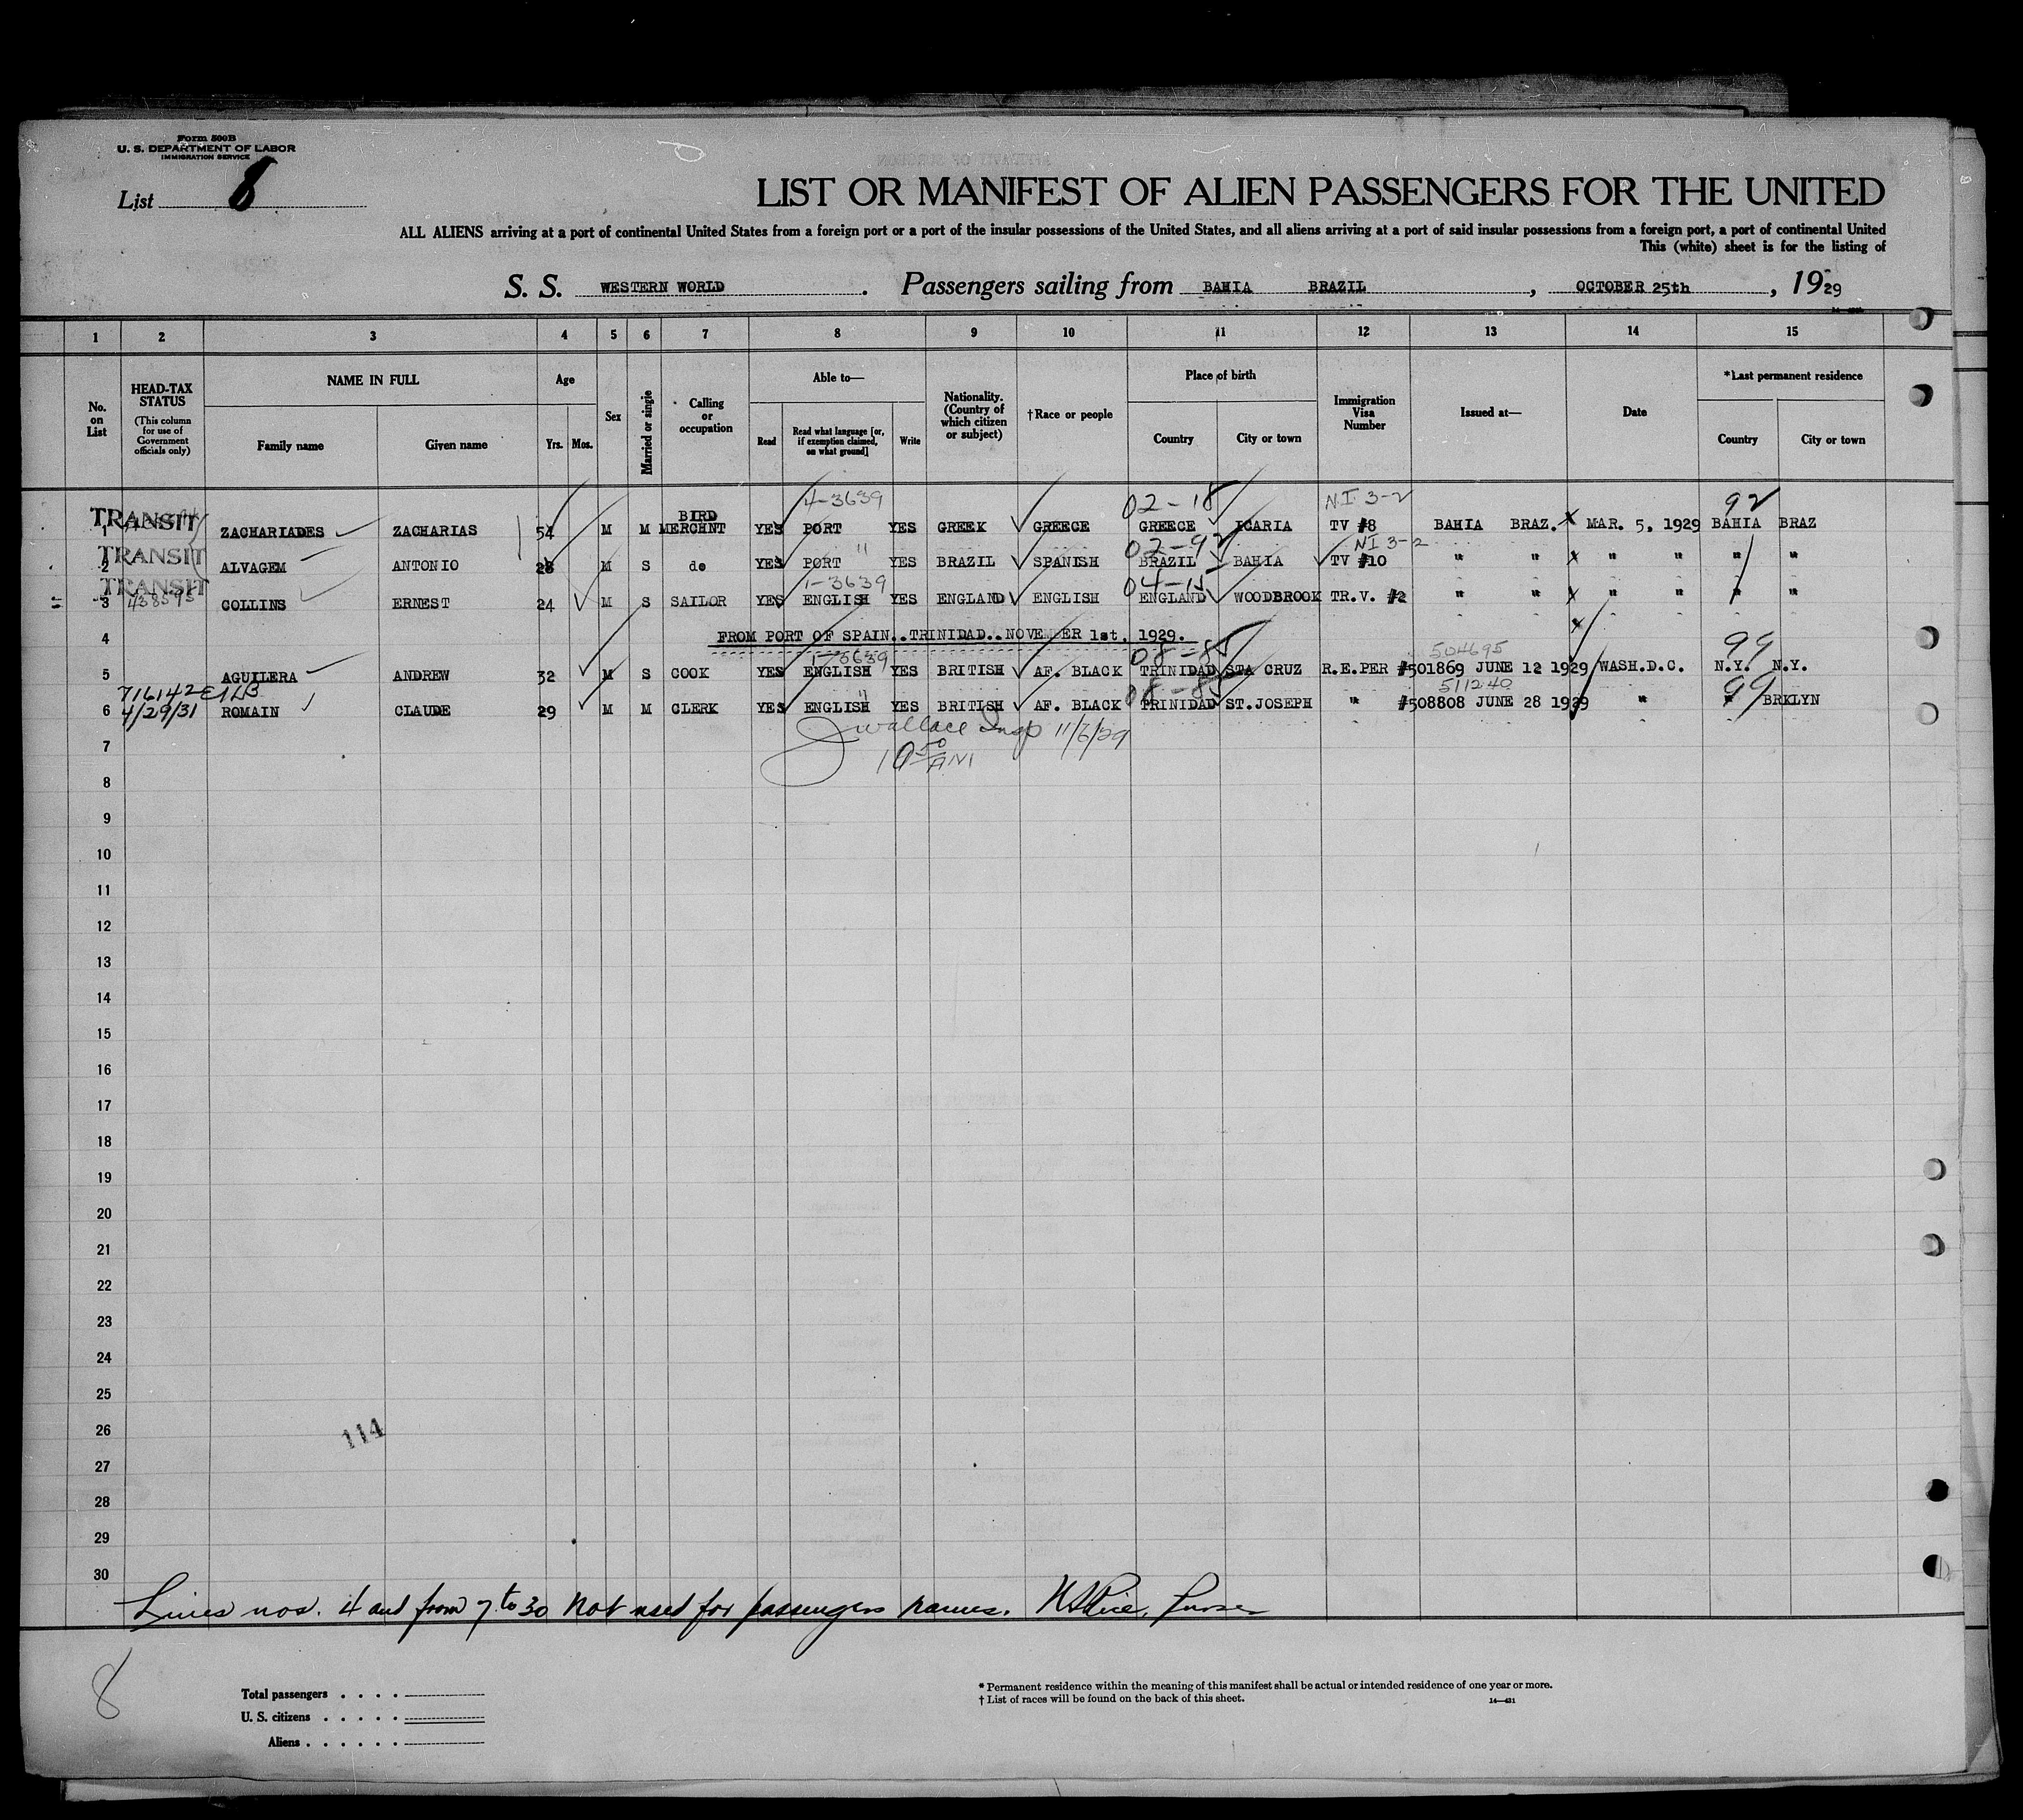 Form 500B
U. S. DEPARTMENT OF LABOR
IMMIGRATION SERVICE
List 8
LIST OR MANIFEST OF ALIEN PASSENGERS FOR THE UNITED
ALL ALIENS arriving at a port of continental United States from a foreign port or a port of the insular possessions of the United States, and all aliens arriving at a port of said insular possessions from a foreign port, a port of continental United
This (white) sheet is for the listing of
S. S. WESTERN WORLD . Passengers sailing from BAHIA BRAZIL , OCTOBER 25th , 1929
1 2 3 4 5 6 7 8 9 10 11 12 13 14 15
No. on List
HEAD-TAX STATUS
(This column for use of Government officials only)
NAME IN FULL
Family name Given name
Age
Yrs. Mos.
Sex
Married or single
Calling or occupation
Able to—
Read
Read what language [or, if exemption claimed, on what ground]
Write
Nationality. (Country of which citizen or subject)
†Race or people
Place of birth
Country City or town
Immigration Visa Number
Issued at—
Date
*Last permanent residence
Country City or town
4-3639 02-18 NI 3-2 92
BIRD
TRANSIT
1 ZACHARIADES ZACHARIAS 54 M M MERCHNT YES PORT YES GREEK GREECE GREECE ICARIA TV #8 BAHIA BRAZ. MAR. 5, 1929 BAHIA BRAZ
TRANSIT
" 02-92 NI 3-2
2 ALVAGEM ANTONIO 28 M S do YES PORT YES BRAZIL SPANISH BRAZIL BAHIA TV #10 " " " " " "
TRANSIT
1-3639 04-15
3 438595 COLLINS ERNEST 24 M S SAILOR YES ENGLISH YES ENGLAND ENGLISH ENGLAND WOODBROOK TR.V. #2 " " " " " "
4 FROM PORT OF SPAIN..TRINIDAD..NOVEMBER 1st, 1929.
1-3639 08-85 504695 99
5 AGUILERA ANDREW 32 M S COOK YES ENGLISH YES BRITISH AF. BLACK TRINIDAD STA CRUZ R.E.PER #501869 JUNE 12 1929 WASH.D.C. N.Y. N.Y.
716142 " 08-85 511240 99
6 4/29/31 ROMAIN CLAUDE 29 M M CLERK YES ENGLISH YES BRITISH AF. BLACK TRINIDAD ST.JOSEPH " #508808 JUNE 28 1929 " " BRKLYN
Wallace Insp 11/6/29
7
10 50 AM
8
9
10
11
12
13
14
15
16
17
18
19
20
21
22
23
24
25
26
114
27
28
29
30
Lines nos. 4 and from 7 to 30 not used for passengers names. Purser
8
Total passengers . . . .
U. S. citizens . . . . .
Aliens . . . . . .
* Permanent residence within the meaning of this manifest shall be actual or intended residence of one year or more.
† List of races will be found on the back of this sheet. 14—431